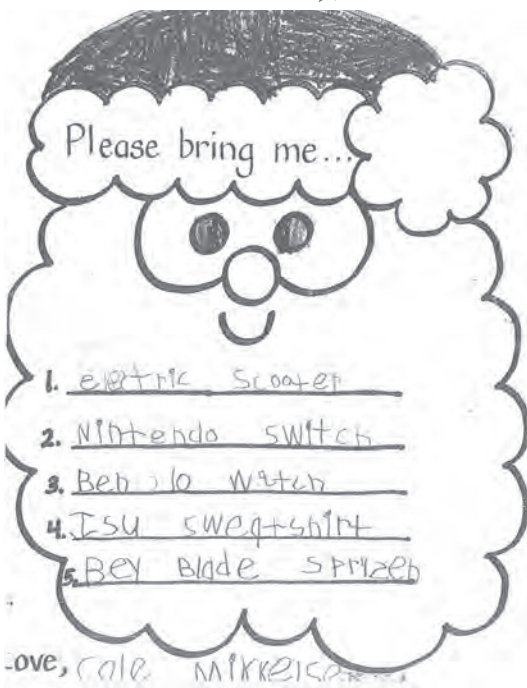 Please bring me...
1. electric scooter
2. Nintendo switch
3. Ben 10 watch
4. Isu sweatshirt
5. Bey Blade sprizen
Love, Cole